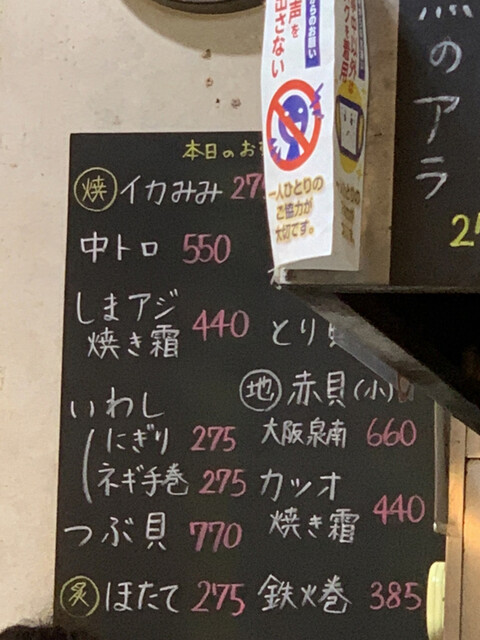 本日のお
焼 イカみみ 27
中トロ 550
しまアジ
焼き霜 440
いわし
にぎり 275
ネギ手巻 275
つぶ貝 770
炙 ほたて 275
とり貝
地 赤貝(小)
大阪泉南 660
カツオ
焼き霜 440
鉄火巻 385
からのお願い
声を
出さない
一人ひとりの
ご協力が
大切です。
のアラ